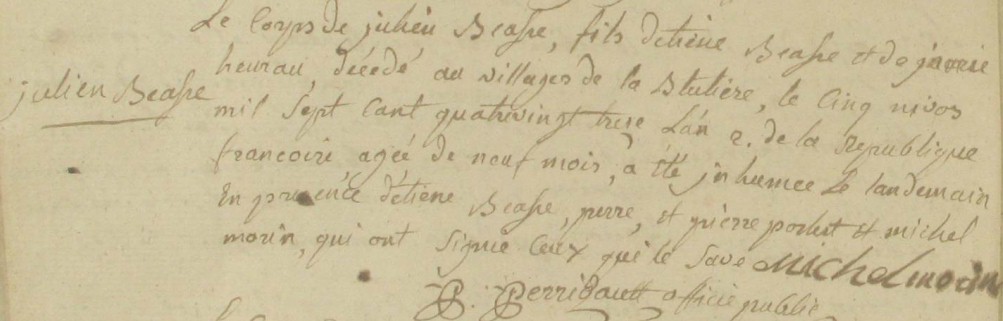 Le Corps de julien Beasse, fils detiene Beasse et de jacquine
julien Beasse
heurau, décédé au villages de la Blutière, le Cinq nivos
mil sept cant quatrevingt treze Lán 2. de la republique
francoise ageé de neuf mois, a été jnhumee Le landemain
En presence détiene Beasse, perre, et pierre portest et michel
morin, qui ont signé Ceux qui le save Michel morin
P: Perrigault officié public